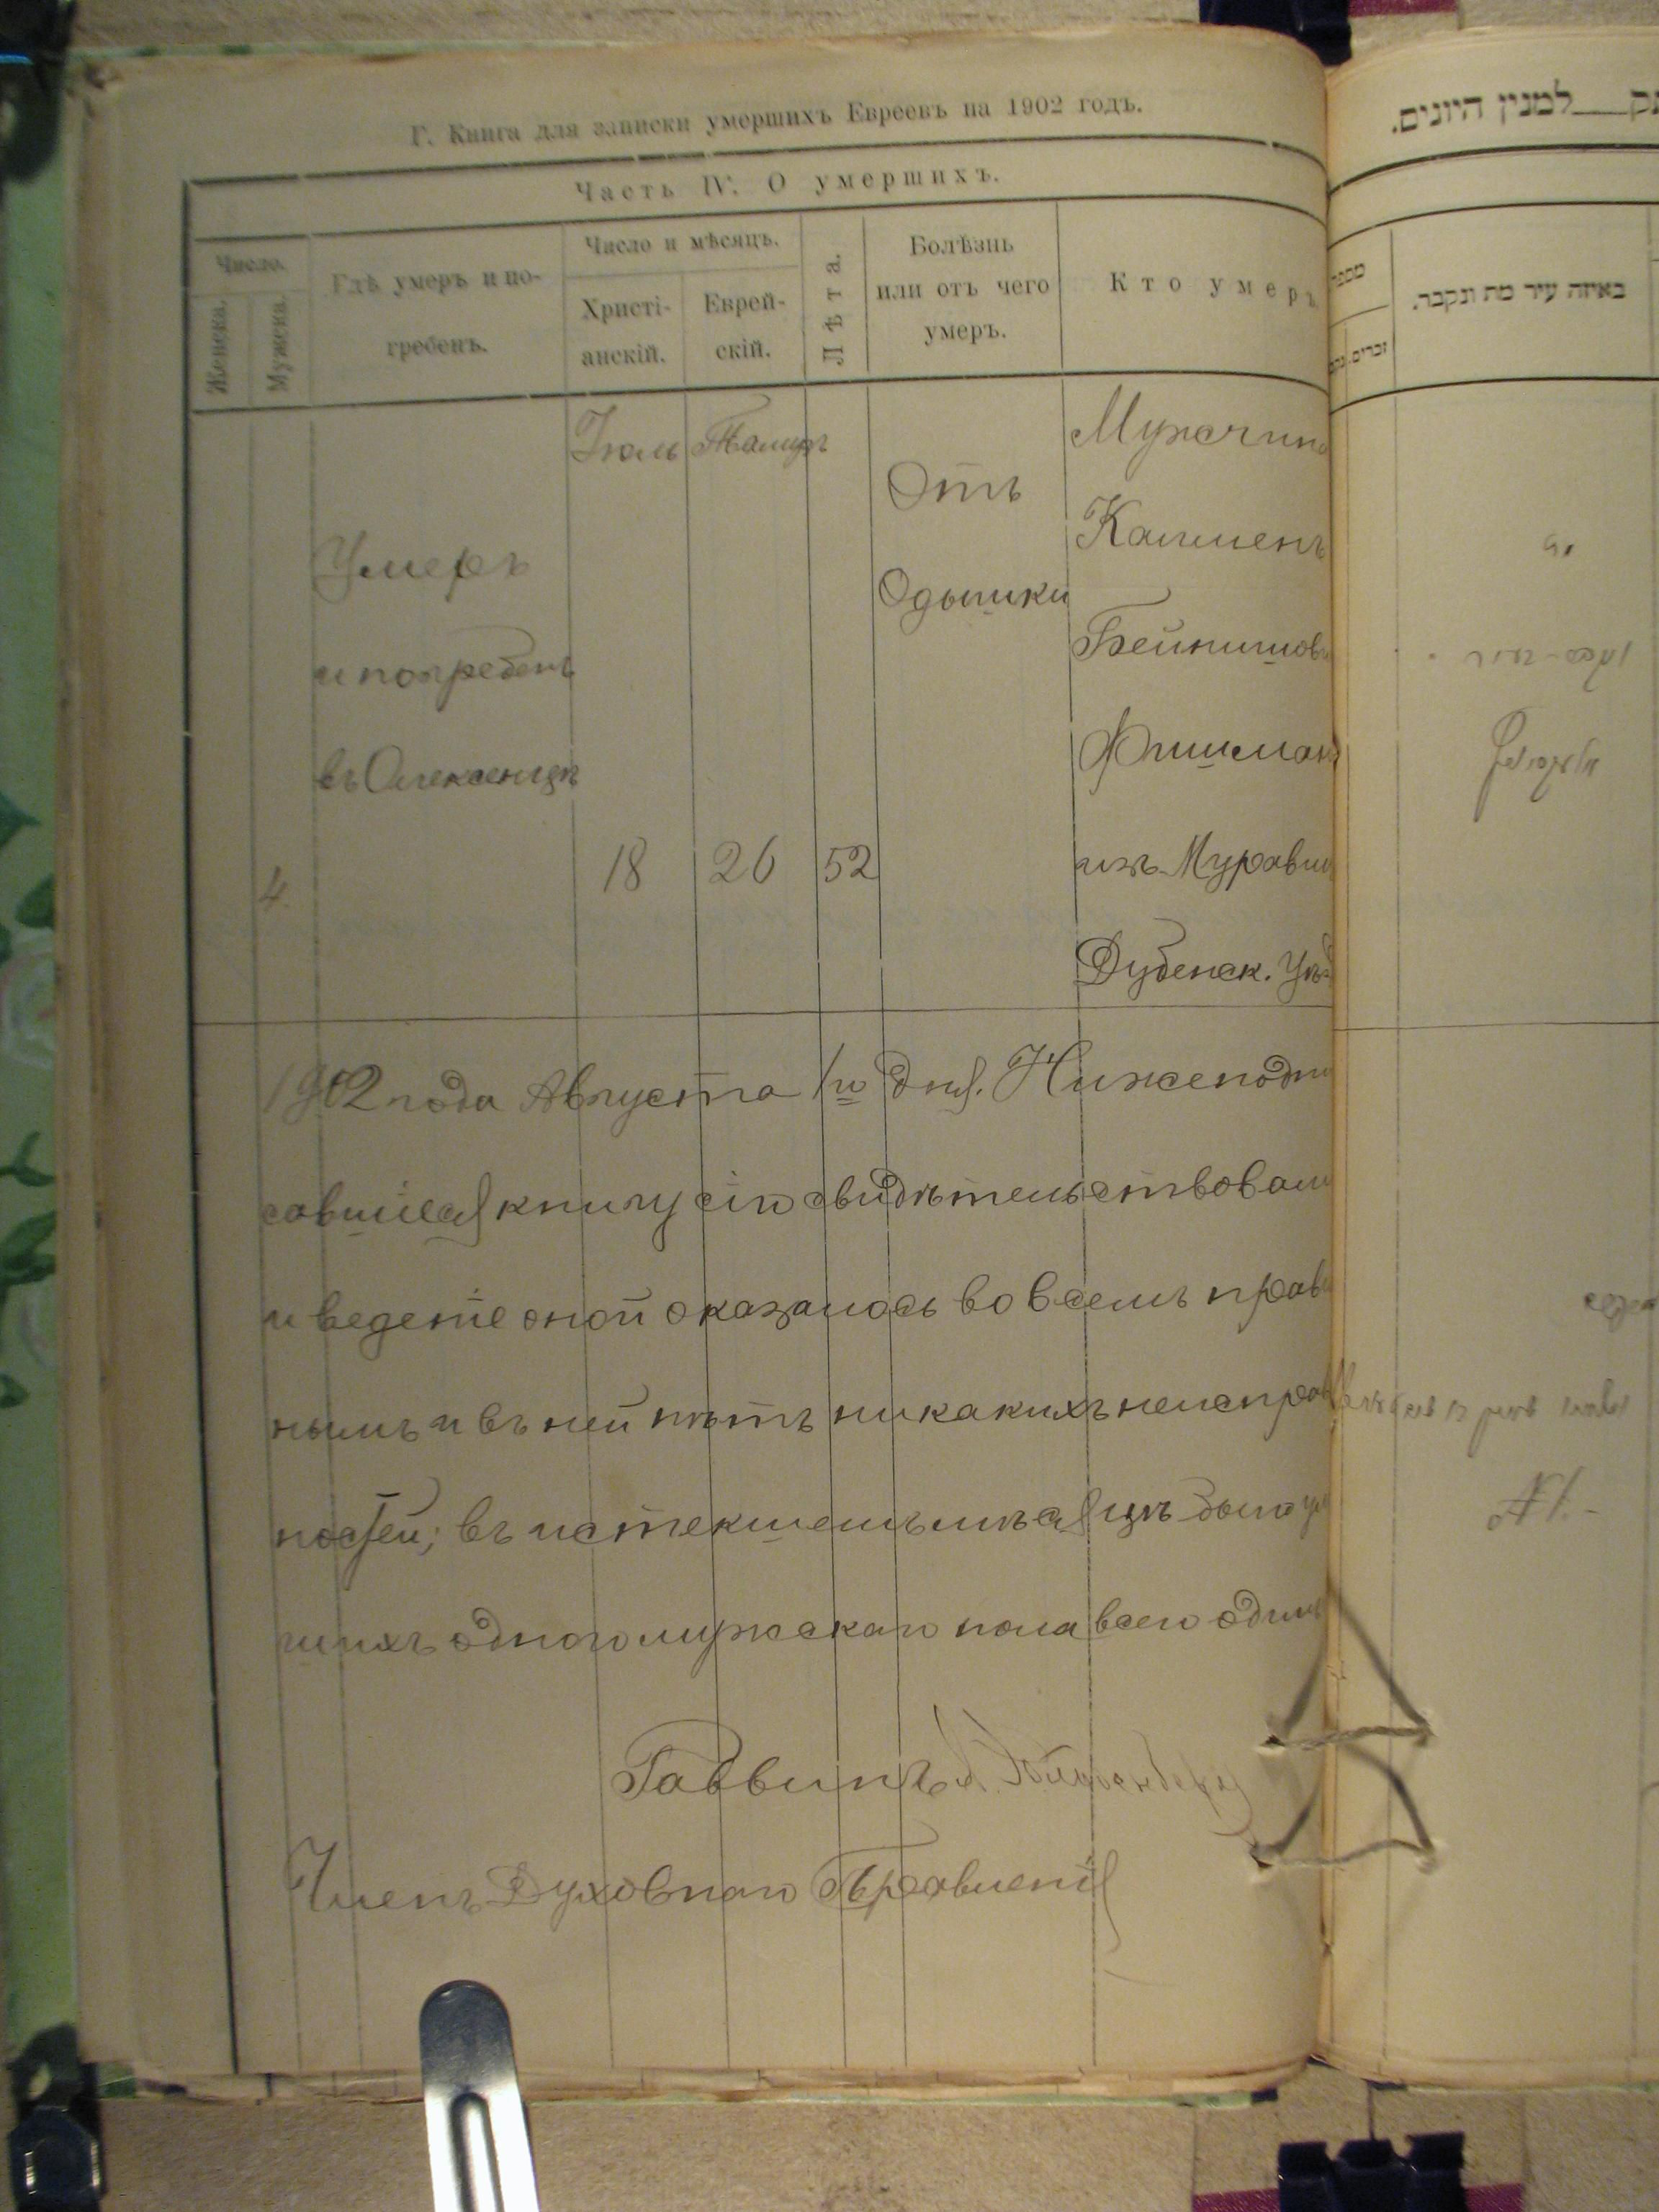 Г. Книга для записки умершихъ Евреевъ на 1902 годъ.
Часть IV. О умершихъ.
Число.
Женска.
Мужска.
Гдѣ умеръ и по-
гребенъ.
Число и мѣсяцъ.
Христі-
анскій.
Еврей-
скій.
Лѣта.
Болѣзнь
или отъ чего
умеръ.
Кто умеръ
Іюль
Тамузъ
4.
Умеръ
и погребенъ
въ Олексенцѣ
18
26
52
Отъ
Одышки
Мужчина
Калменъ
Бейнишов
Фишман
изъ Мурави
Дубенск. Уѣзд
1902 года Августа 1го дня. Нижеподпи
савшіеся книгу сію свидѣтельствовали
и веденіе оной оказалось во всемъ прави
нымъ и въ ней нѣтъ никакихъ неисправ
ностей; въ истекшемъ мѣсяцѣ было ум
шихъ одного мужскаго пола всего одинъ
Раввинъ
Членъ Духовнаго Правленія
למנין היונים.
מספר
זכרים.
באיזה עיר מת ונקבר.